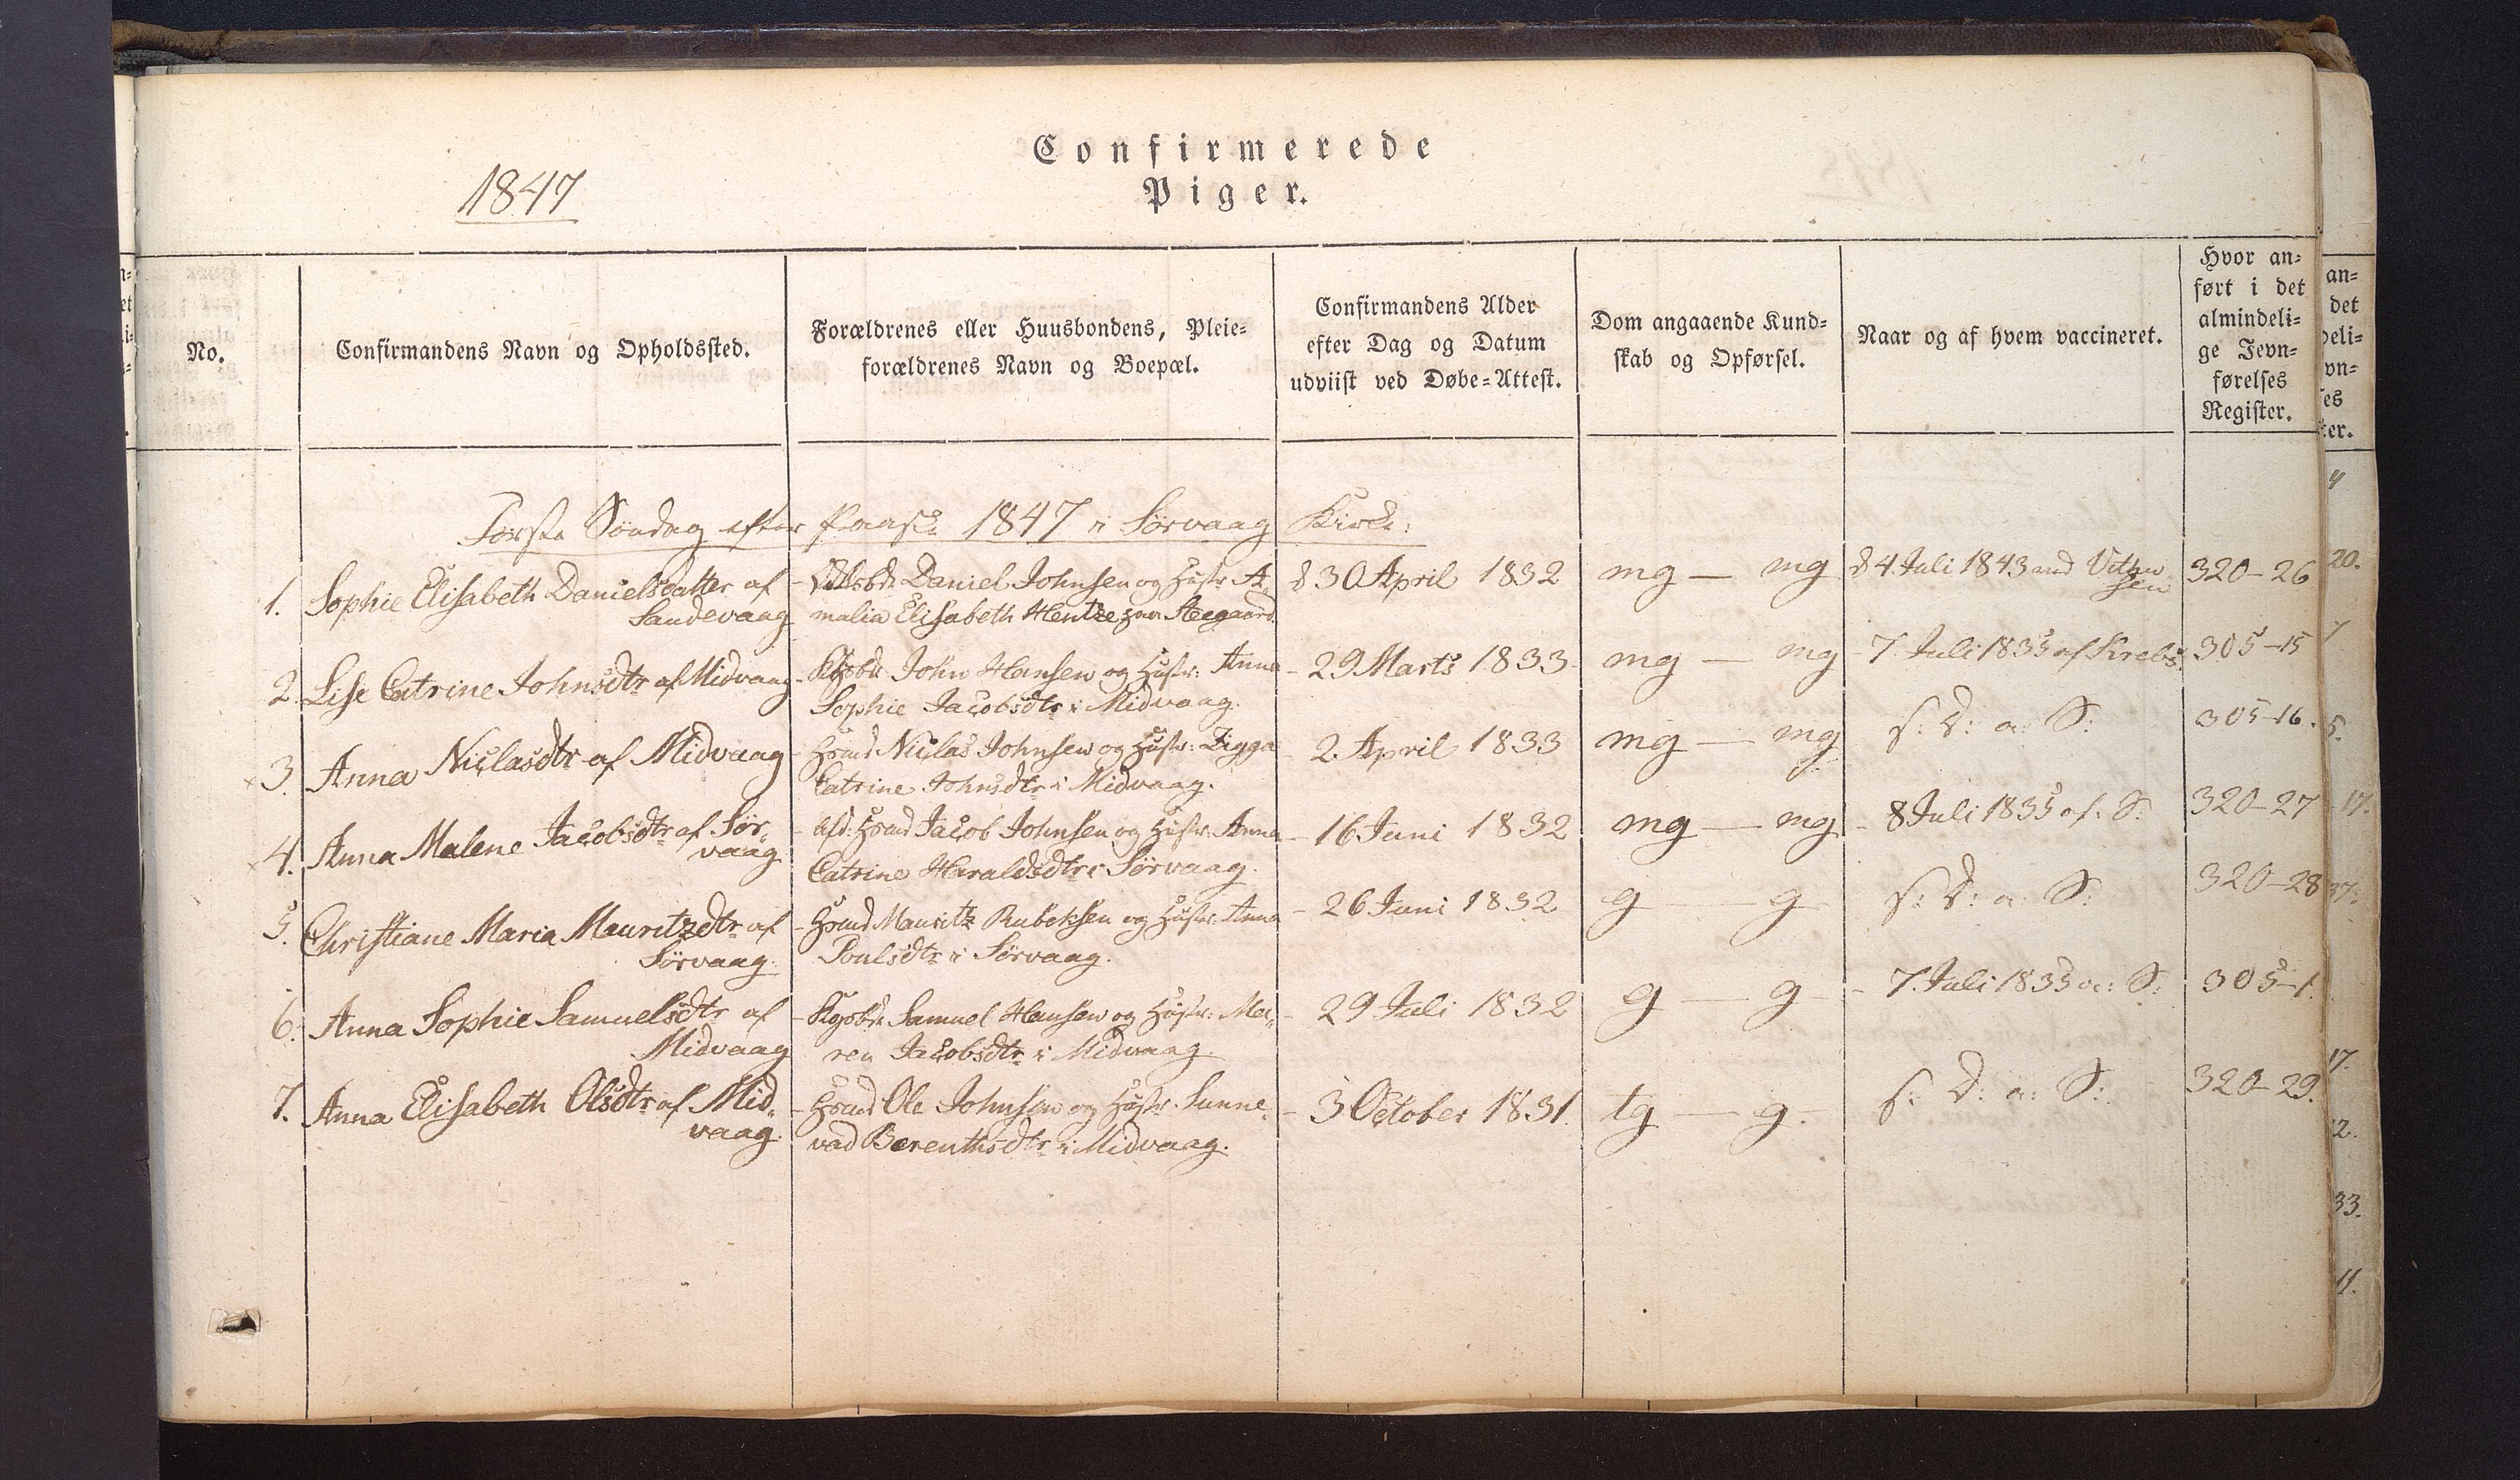 Confirmerede
Piger.
1847
No.
Confirmandens Navn og Opholdssted.
Forældrenes eller Huusbondens, Pleie=
forældrenes Navn og Boepæl.
Confirmandens Alder
efter Dag og Datum
udviist ved Døbe=Attest.
Dom angaaende Kund=
skab og Opførsel.
Naar og af hvem vaccineret.
Hvor an=
ført i det
almindeli=
ge Jevn=
førelses
Register.
Første Søndag efter Paaske 1847 i Sörvaag Kirke:
1. Sophie Elisabeth Danielsdatter af
Sandevaag
Daniel Johnsen og Hustr: A=
malia Elisabeth Hentze paa Steegaard.
d 30 April 1832
mg — mg
d 4 Juli 1843 ved
320–26
2. Lise Catrine Johnsdtr af Midvaag
Kgsbd: John Hansen og Hustr: Anna
Sophie Jacobsdtr i Midvaag.
– 29 Marts 1833
mg — mg
7. Juli 1835 af Krebs.
305–15
3. Anna Niclasdtr af Midvaag
Hsmd: Niclas Johnsen og Hustr: Zigga
Catrine Johnsdtr i Midvaag.
– 2. April 1833
mg — mg
s: D: a: S:
305–16.
4. Anna Malene Jacobsdtr af Sör=
vaag
afd: Hsmd Jacob Johnsen og Hustr: Anna
Catrine Haraldsdtr i Sörvaag.
– 16 Juni 1832
mg — mg
– 8 Juli 1835 af: S:
320–27
5. Christiane Maria Mauritzdtr af
Sörvaag.
Hsmd Mauritz Rubeksen og Hustr: Anna
Poulsdtr i Sörvaag.
– 26 Juni 1832
g — g
s: D: a: S:
320–28
6. Anna Sophie Samuelsdtr af
Midvaag
Kgsbd: Samuel Hansen og Hustr: Ma=
ren Jacobsdtr i Midvaag.
– 29 Juli 1832
g — g
– 7. Juli 1835 a: S:
305–1.
7. Anna Elisabeth Olsdtr af Mid=
vaag.
Hsmd Ole Johnsen og Hustr: Sunne=
vad Berenthsdtr i Midvaag.
– 3 October 1831.
tg — g.
s: D: a: S:
320–29.